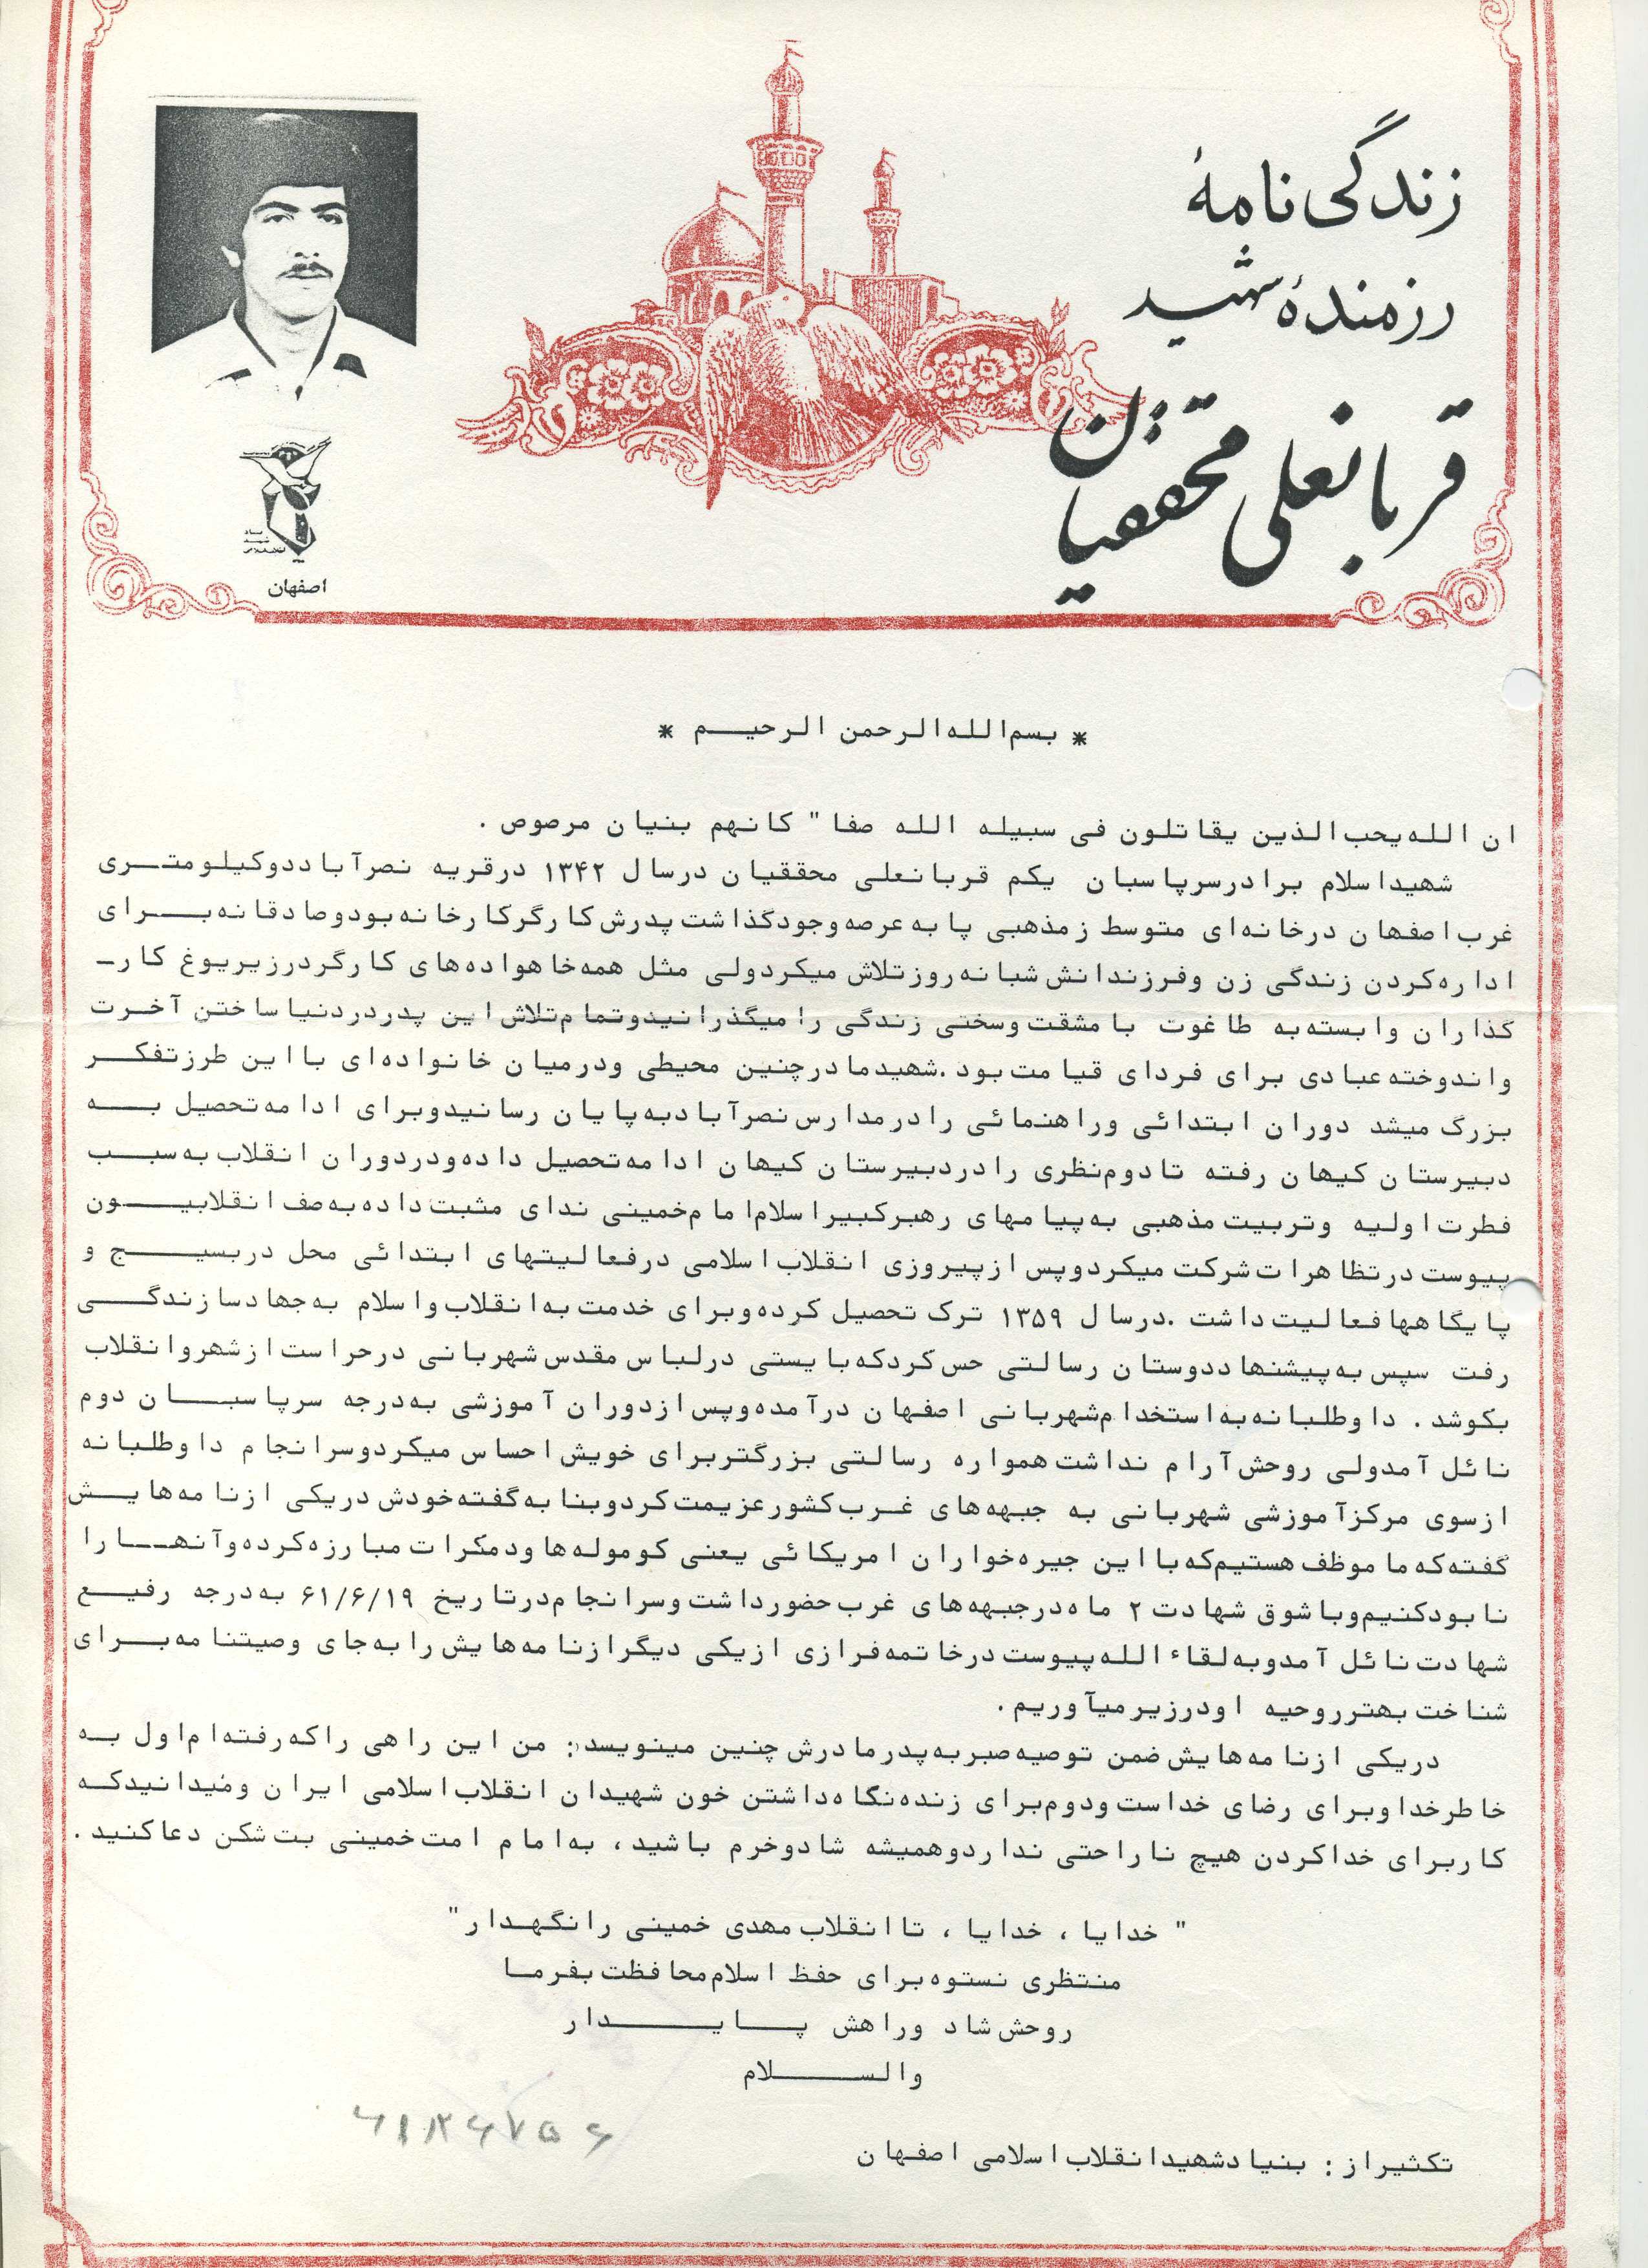 زندگی نامهٔ
رزمندهٔ شهید
قربانعلی محققیان
اصفهان
* بسم الله الرحمن الرحیم *
ان الله یحب الذین یقاتلون فی سبیله الله صفا" کانهم بنیان مرصوص .
شهید اسلام برادر سرپاسبان یکم قربانعلی محققیان در سال ۱۳۴۲ در قریه نصرآباد دو کیلومتری
غرب اصفهان در خانه‌ای متوسط ز مذهبی پا به عرصه وجود گذاشت پدرش کارگر کارخانه بود و صادقانه برای
اداره کردن زندگی زن و فرزندانش شبانه روز تلاش میکرد ولی مثل همه خاهواده‌های کارگر در زیر یوغ کار-
گذاران وابسته به طاغوت با مشقت و سختی زندگی را میگذرانید و تمام تلاش این پدر در دنیا ساختن آخرت
و اندوخته عبادی برای فردای قیامت بود .شهید ما در چنین محیطی و در میان خانواده‌ای با این طرز تفکر
بزرگ میشد دوران ابتدائی و راهنمائی را در مدارس نصرآباد به پایان رسانید و برای ادامه تحصیل به
دبیرستان کیهان رفته تا دوم نظری را در دبیرستان کیهان ادامه تحصیل داده و در دوران انقلاب به سبب
فطرت اولیه و تربیت مذهبی به پیامهای رهبر کبیر اسلام امام خمینی ندای مثبت داده به صف انقلابیون
پیوست در تظاهرات شرکت میکرد و پس از پیروزی انقلاب اسلامی در فعالیتهای ابتدائی محل در بسیج و
پایگاهها فعالیت داشت .در سال ۱۳۵۹ ترک تحصیل کرده و برای خدمت به انقلاب و اسلام به جهاد سازندگی
رفت سپس به پیشنهاد دوستان رسالتی حس کرد که بایستی در لباس مقدس شهربانی در حراست از شهر و انقلاب
بکوشد . داوطلبانه به استخدام شهربانی اصفهان درآمده و پس از دوران آموزشی به درجه سرپاسبان دوم
نائل آمد ولی روحش آرام نداشت همواره رسالتی بزرگتر برای خویش احساس میکرد و سرانجام داوطلبانه
از سوی مرکز آموزشی شهربانی به جبهه‌های غرب کشور عزیمت کرد و بنا به گفته خودش در یکی از نامه‌هایش
گفته که ما موظف هستیم که با این جیره‌خواران امریکائی یعنی کوموله‌ها و دمکرات مبارزه کرده و آنها را
نابود کنیم و با شوق شهادت ۲ ماه در جبهه‌های غرب حضور داشت و سرانجام در تاریخ ۶۱/۶/۱۹ به درجه رفیع
شهادت نائل آمد و به لقاء الله پیوست در خاتمه فرازی از یکی دیگر از نامه‌هایش را به جای وصیتنامه برای
شناخت بهتر روحیه او در زیر میآوریم .
در یکی از نامه‌هایش ضمن توصیه صبر به پدر مادرش چنین مینویسد: من این راهی را که رفته‌ام اول به
خاطر خدا و برای رضای خداست و دوم برای زنده نگاه داشتن خون شهیدان انقلاب اسلامی ایران و میدانید که
کار برای خدا کردن هیچ ناراحتی ندارد و همیشه شاد و خرم باشید ، به امام امت خمینی بت شکن دعا کنید .
" خدایا ، خدایا ، تا انقلاب مهدی خمینی را نگهدار"
منتظری نستوه برای حفظ اسلام محافظت بفرما
روحش شاد و راهش پایدار
والسلام
۶۱۲۶۷۵۶
تکثیر از : بنیاد شهید انقلاب اسلامی اصفهان